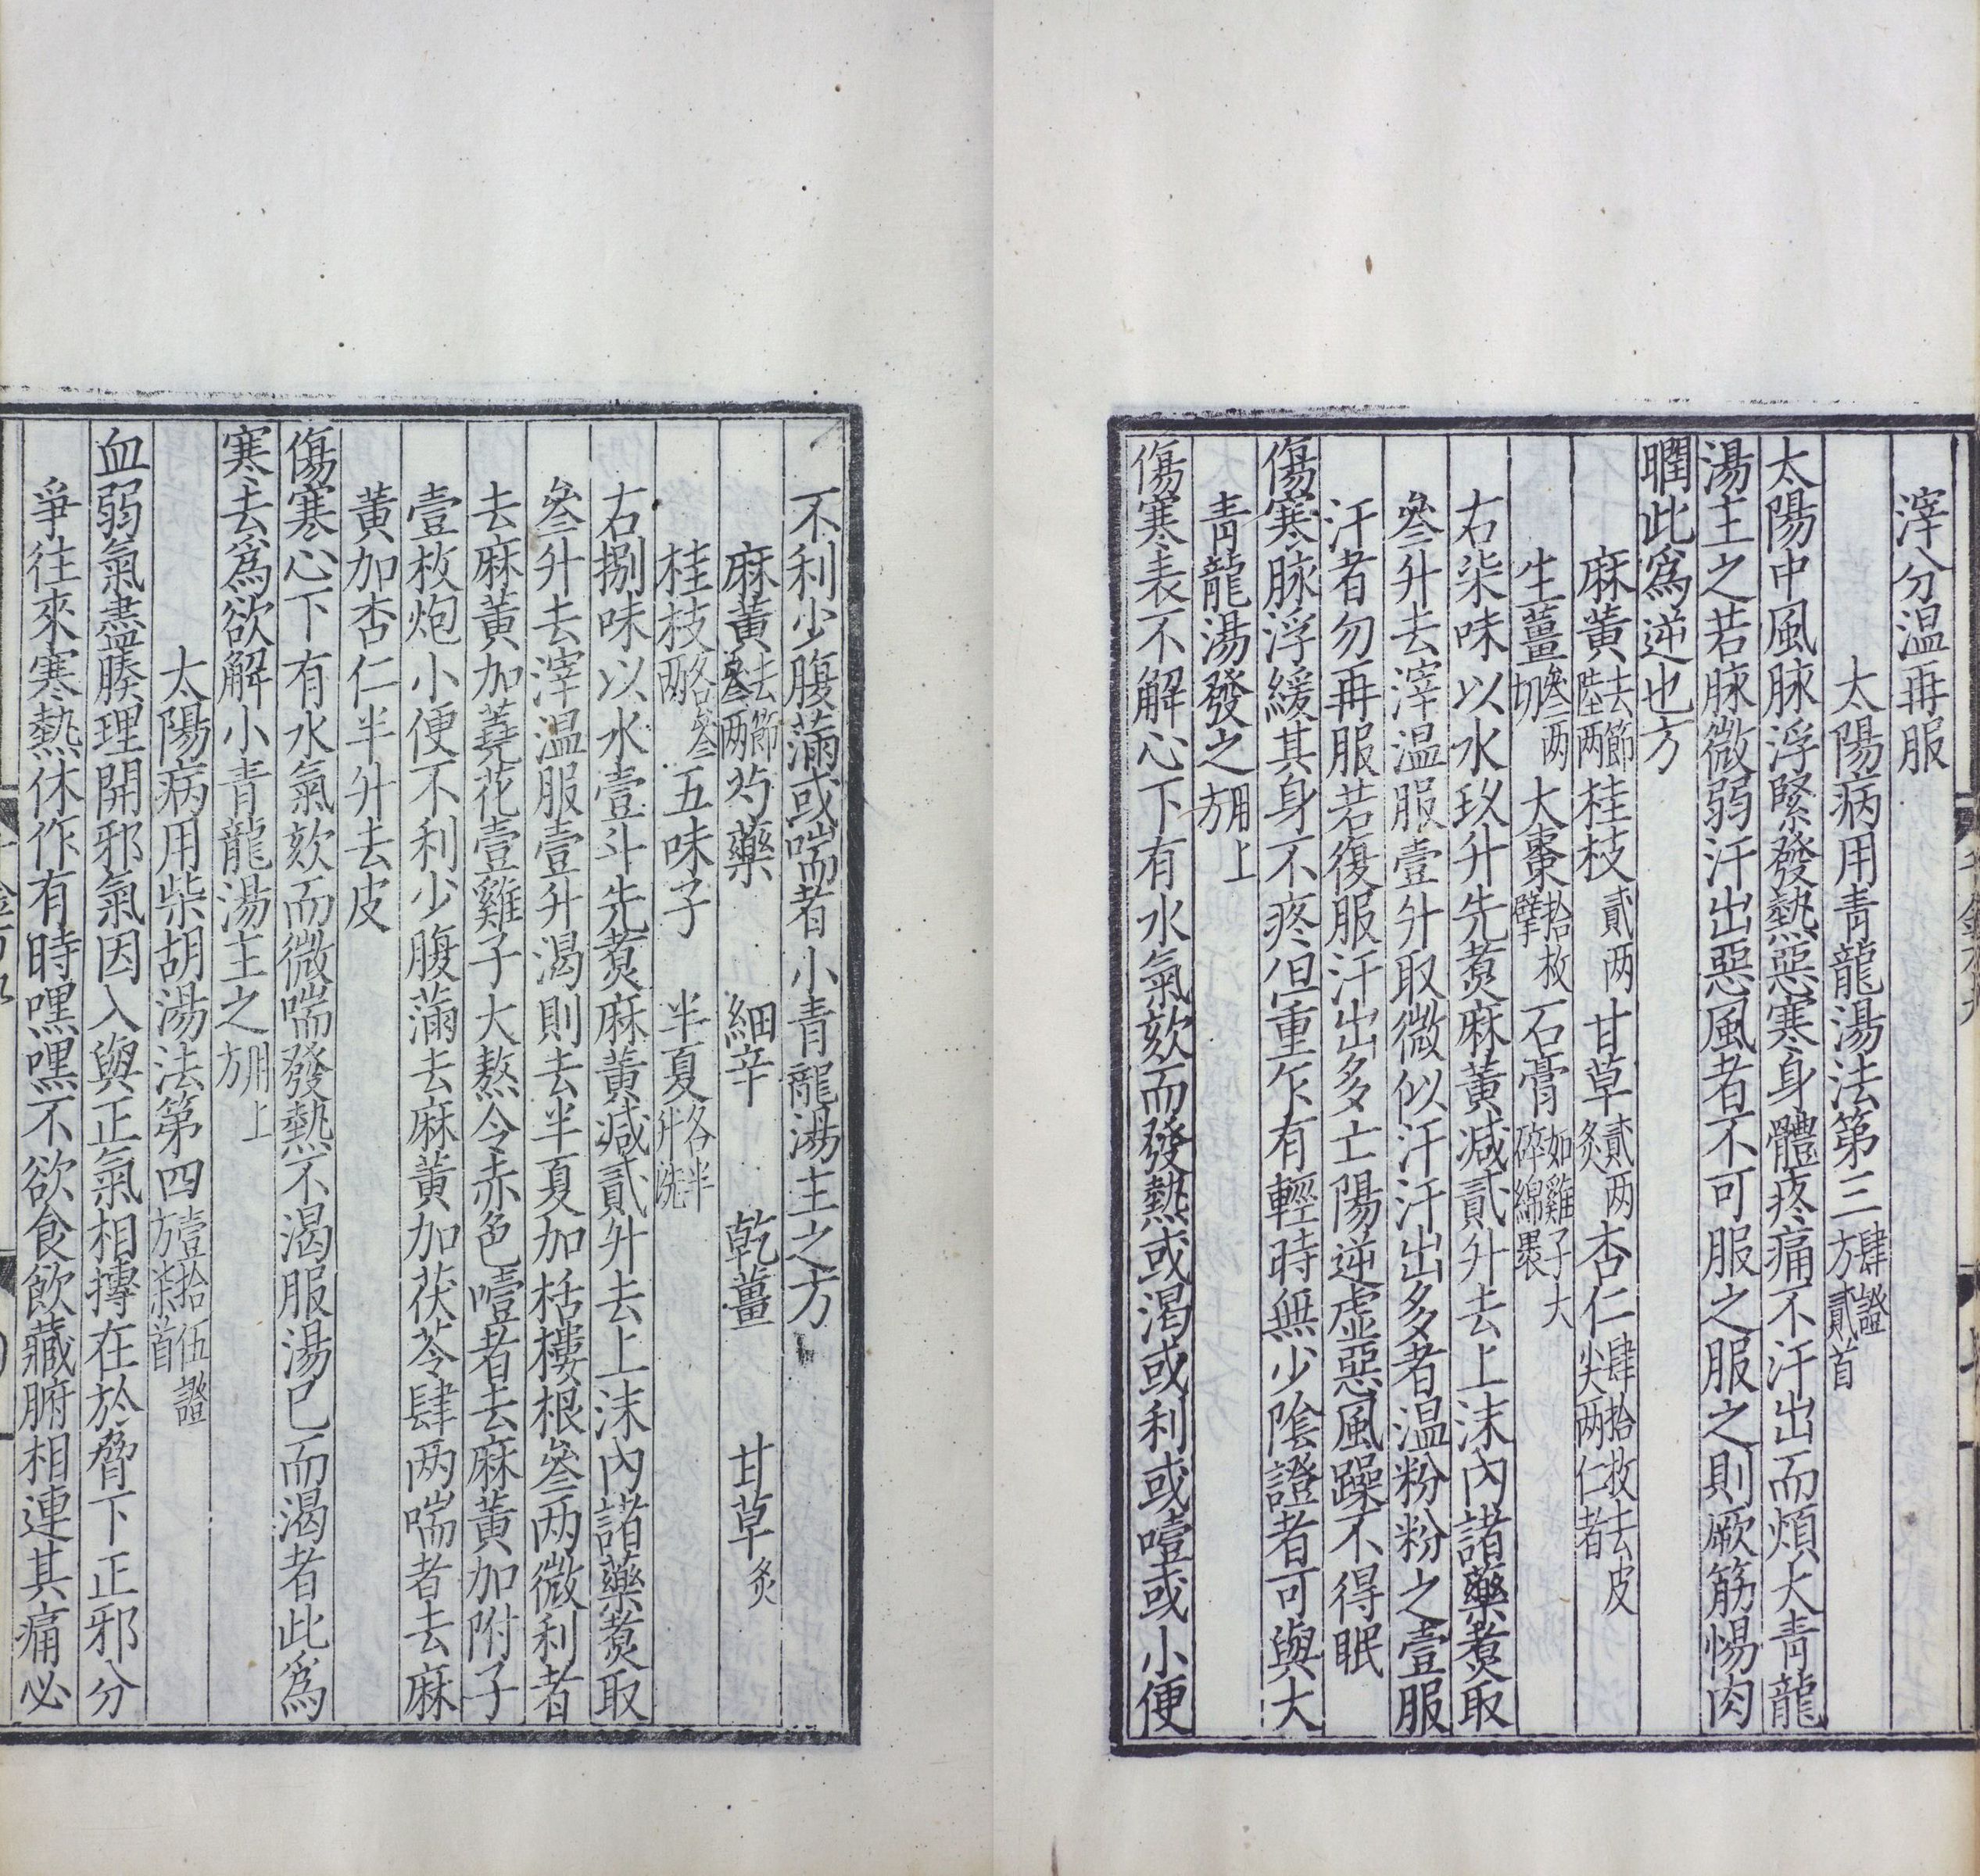 滓分温再服
太陽病用青龍湯法第三肆證方貳首
太陽中風脉浮緊發熱惡寒身體疼痛不汗出而煩大青龍
湯主之若脉微弱汗出惡風者不可服之服之則厥筋惕肉
瞤此爲逆也方
麻黃去節陸兩桂枝貳兩甘草貳兩炙杏仁肆拾枚去皮尖兩仁者
生薑叁兩切大棗拾枚擘石膏如雞子大碎綿裹
右柒味以水玖升先煑麻黃减貳升去上沫內諸藥煑取
叁升去滓温服壹升取微似汗汗出多者温粉粉之壹服
汗者勿再服若復服汗出多亡陽逆虛惡風躁不得眠
傷寒脉浮緩其身不疼但重乍有輕時無少陰證者可與大
青龍湯發之用上方
傷寒表不解心下有水氣欬而發熱或渴或利或噎或小便
不利少腹滿或喘者小青龍湯主之方
麻黃去節叁兩芍藥 細辛 乾薑 甘草炙
桂枝各叁兩五味子 半夏各半升洗
右捌味以水壹斗先煑麻黃减貳升去上沫內諸藥煑取
叁升去滓温服壹升渴則去半夏加栝樓根叁兩微利者
去麻黃加蕘花壹雞子大熬令赤色噎者去麻黃加附子
壹枚炮小便不利少腹滿去麻黃加茯苓肆兩喘者去麻
黃加杏仁半升去皮
傷寒心下有水氣欬而微喘發熱不渴服湯已而渴者此爲
寒去爲欲解小青龍湯主之用上方
太陽病用柴胡湯法第四壹拾伍證方柒首
血弱氣盡腠理開邪氣因入與正氣相摶在於脅下正邪分
爭往來寒熱休作有時嘿嘿不欲食飲藏腑相連其痛必